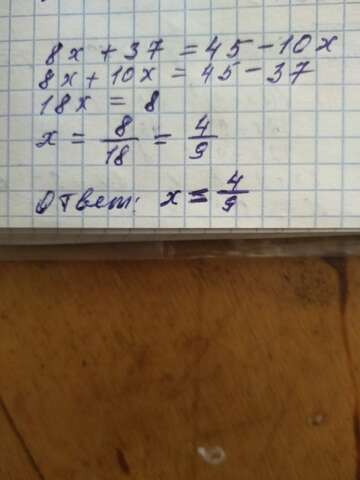 8x + 37 = 45 - 10x
8x + 10x = 45 - 37
18x = 8
x = 8/18 = 4/9
Ответ: x = 4/9